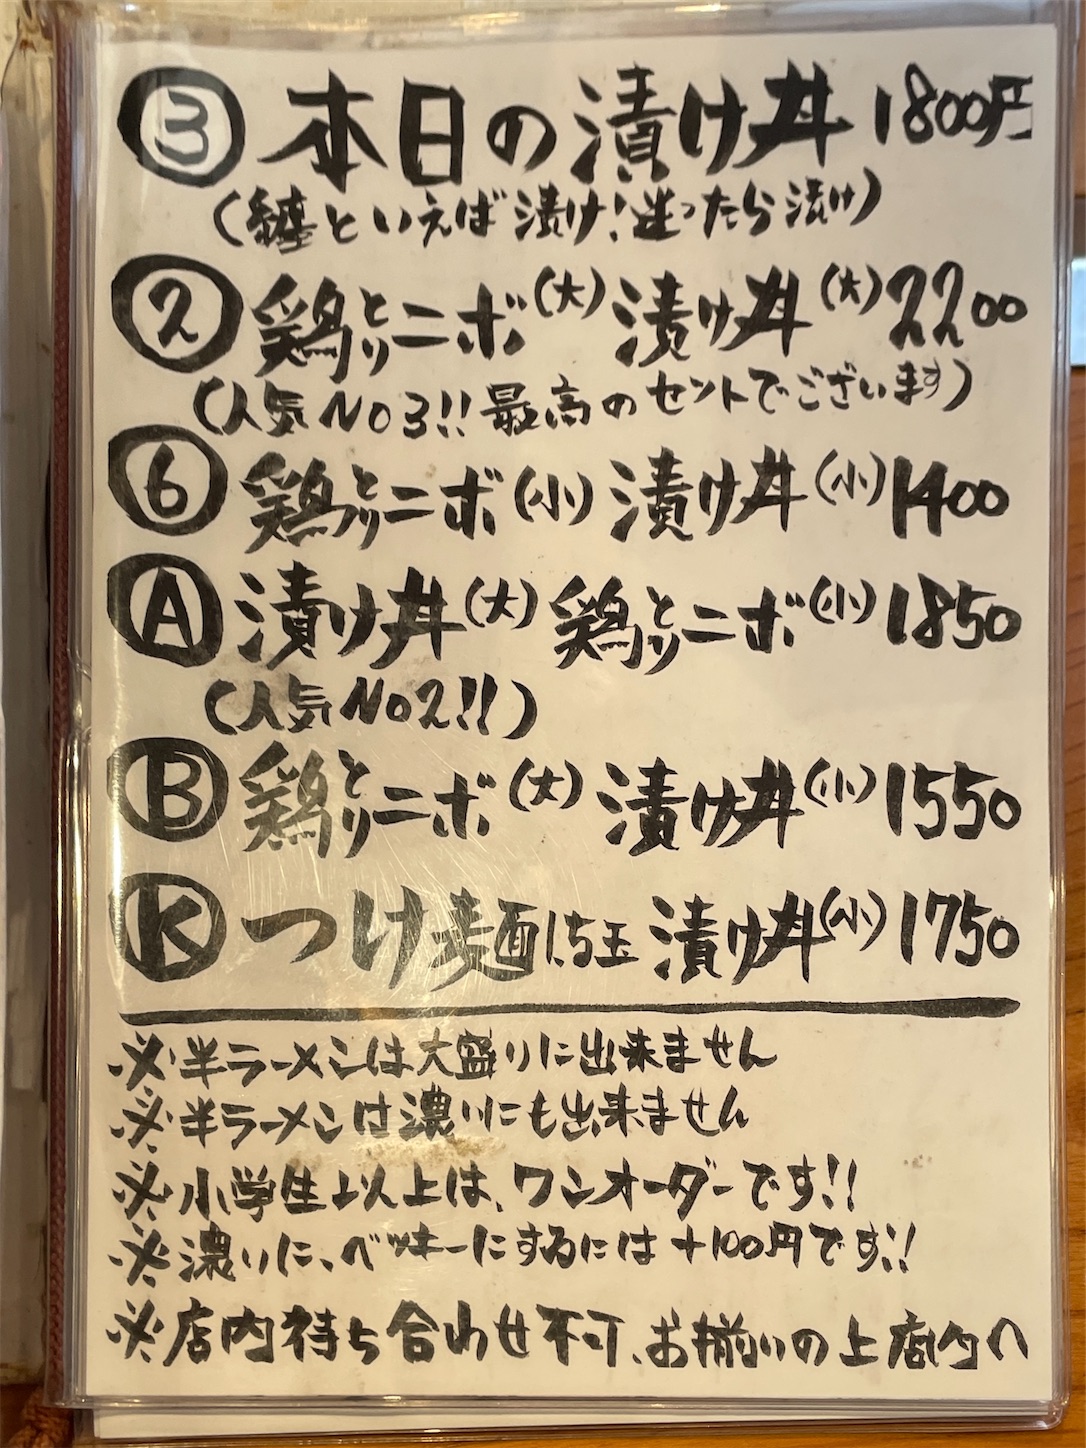 ③ 本日の漬け丼 1800円
(纏といえば漬け!迷ったら漬け)
② 鶏とりニボ(大) 漬け丼(大) 2200
(人気No3!!最高のセットでございます)
⑥ 鶏とりニボ(小) 漬け丼(小) 1400
Ⓐ 漬け丼(大) 鶏とりニボ(小) 1850
(人気No2!!)
Ⓑ 鶏とりニボ(大) 漬け丼(小) 1550
Ⓚ つけ麺1.5玉 漬け丼(小) 1750
※半ラーメンは大盛りに出来ません
※半ラーメンは濃いにも出来ません
※小学生以上は、ワンオーダーです!!
※濃いに、ベッキーにするには+100円です!!
※店内待ち合わせ不可、お揃いの上店内へ